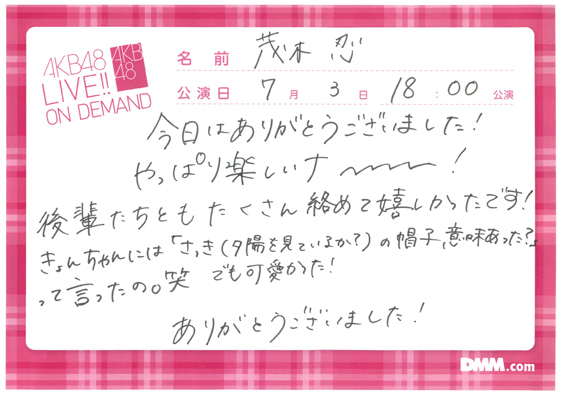 AKB48
LIVE!!
ON DEMAND
AKB
48
名前 茂木 忍
公演日 7月 3日 18:00 公演
今日はありがとうございました!
やっぱり楽しいナ〜〜〜!
後輩たちともたくさん絡めて嬉しかったです!
きょんちゃんには「さっき(夕陽を見ているか?)の帽子、意味あった?」
って言ったの。笑 でも可愛かった!
ありがとうございました!
DMM.com